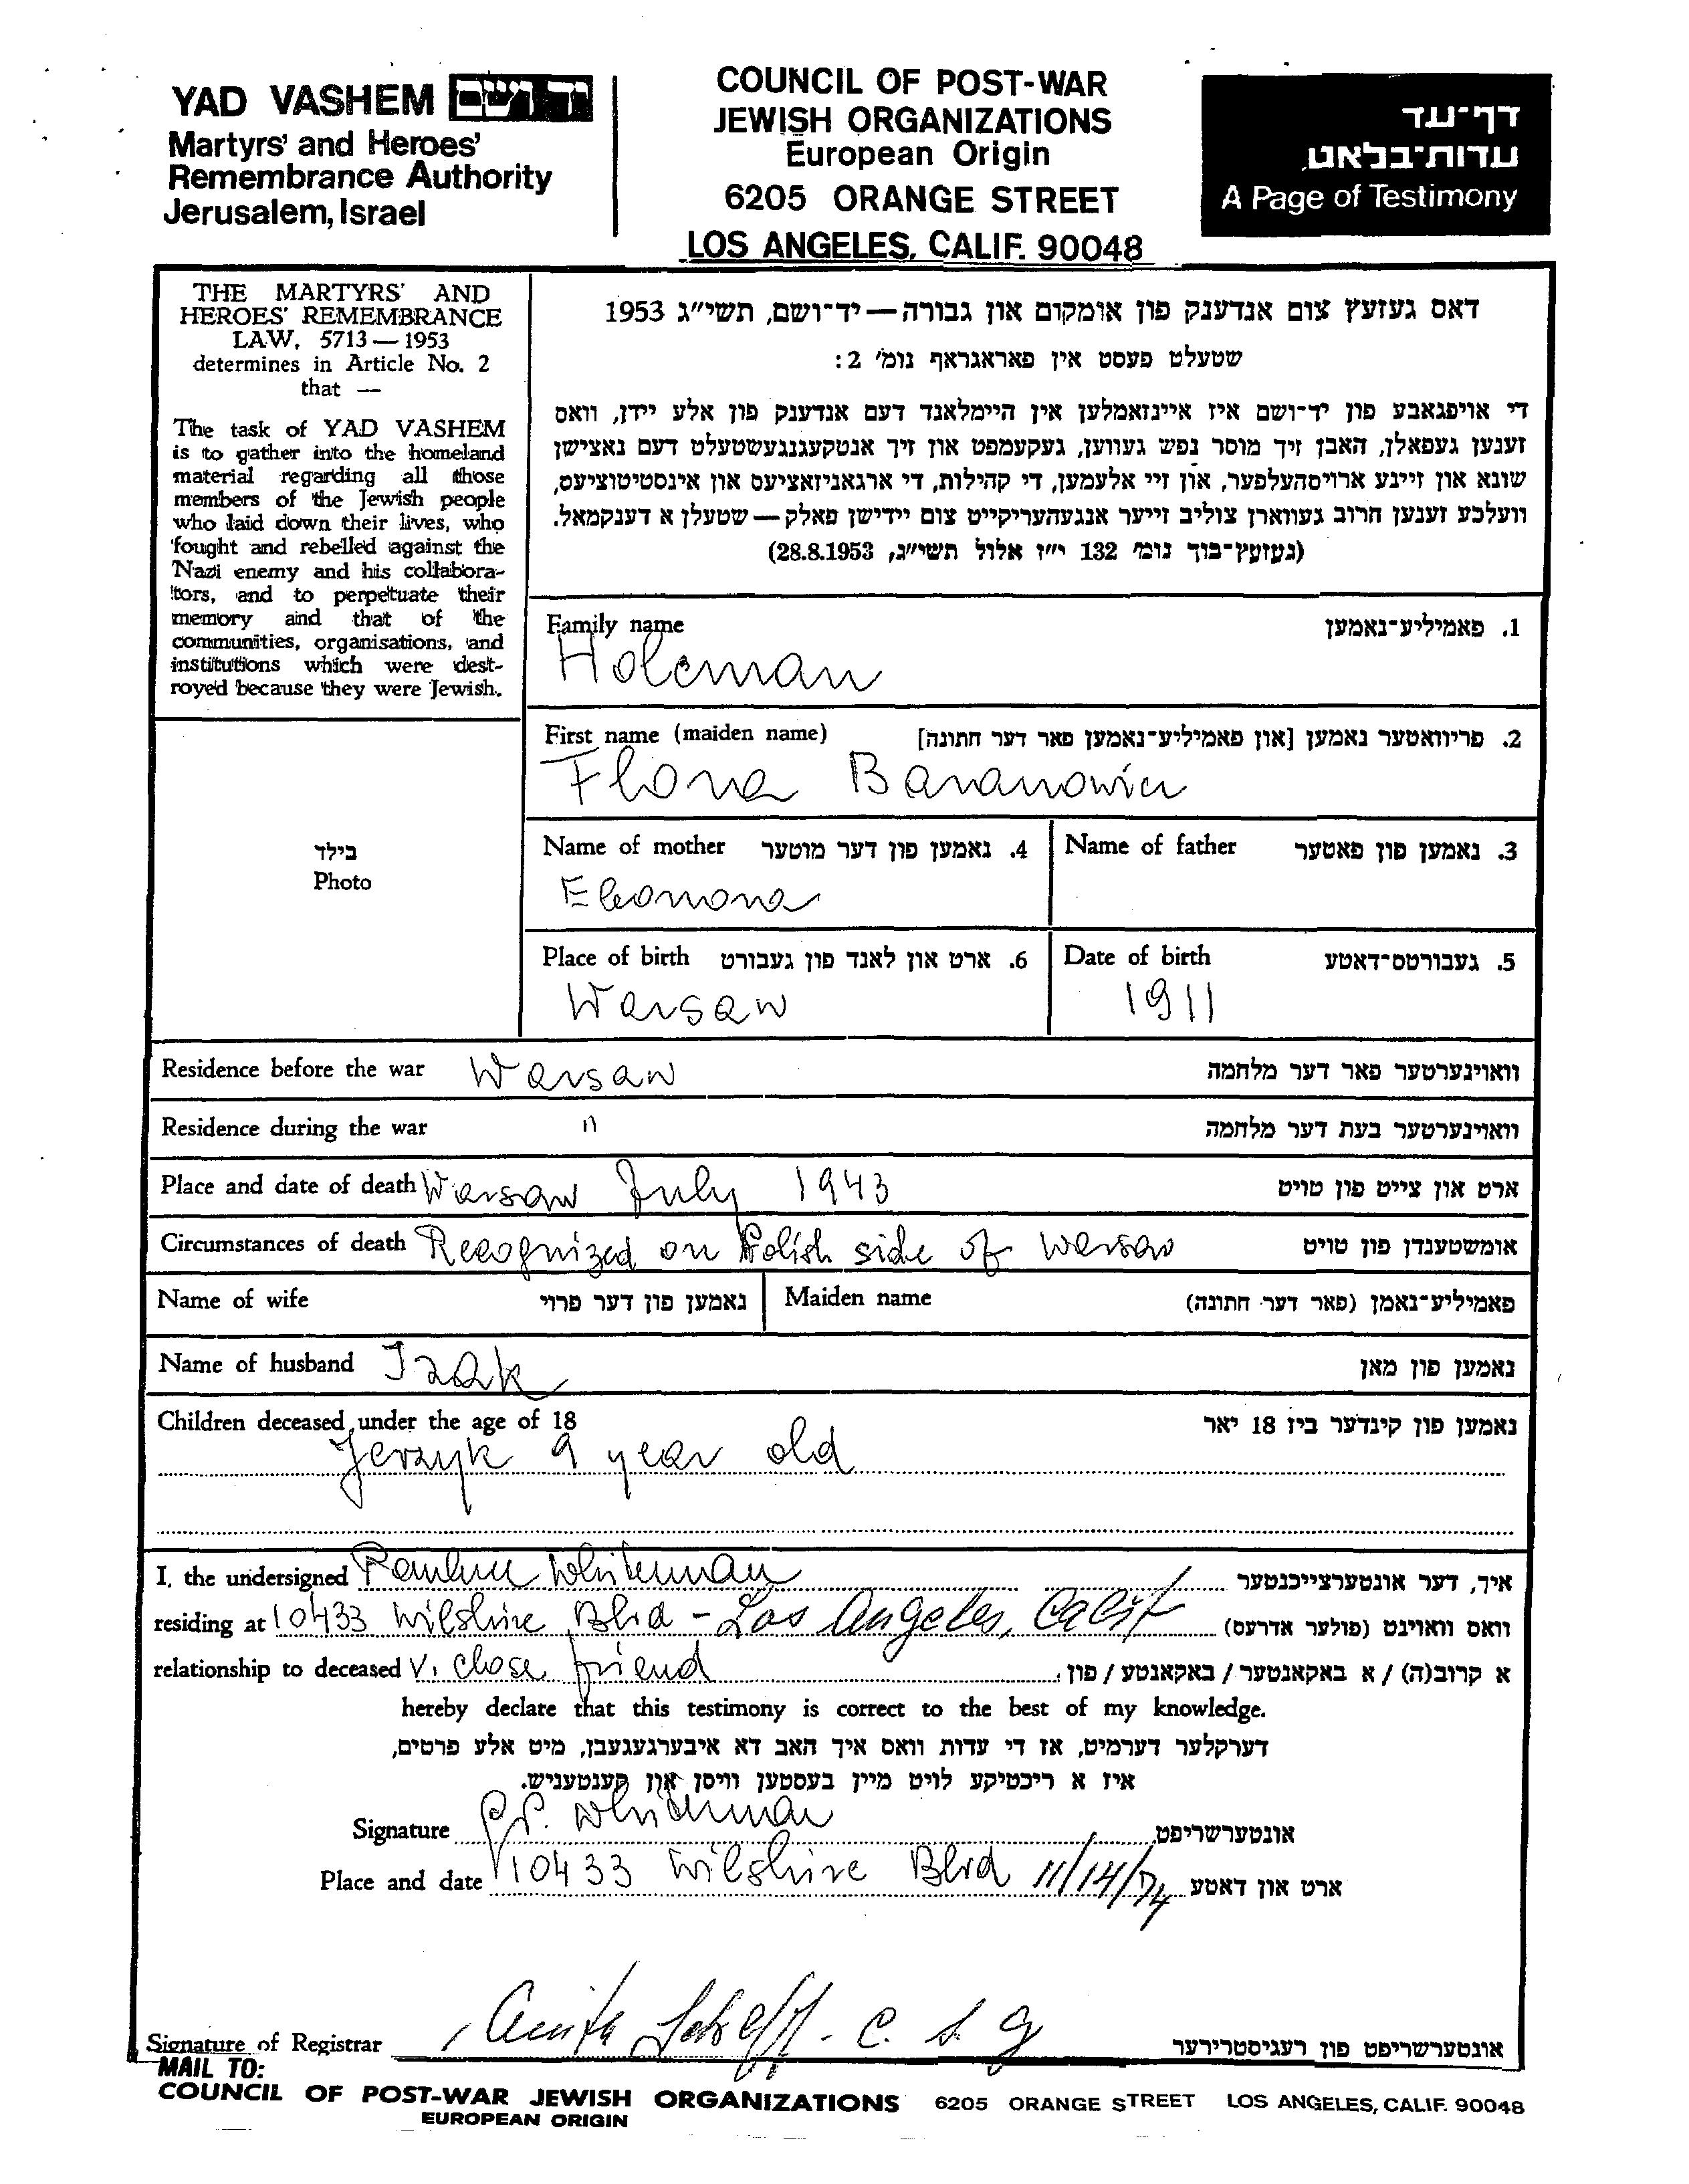 YAD VASHEM יד ושם
Martyrs' and Heroes'
Remembrance Authority
Jerusalem, Israel
COUNCIL OF POST-WAR
JEWISH ORGANIZATIONS
European Origin
6205 ORANGE STREET
LOS ANGELES, CALIF. 90048
דף־עד
עדות־בלאט
A Page of Testimony
THE MARTYRS' AND
HEROES' REMEMBRANCE
LAW, 5713—1953
determines in Article No. 2
that —
The task of YAD VASHEM
is to gather into the homeland
material regarding all those
members of the Jewish people
who laid down their lives, who
fought and rebelled against the
Nazi enemy and his collabora-
tors, and to perpetuate their
memory and that of the
communities, organisations, and
institutions which were dest-
royed because they were Jewish.
דאס געזעץ צום אנדענק פון אומקום און גבורה — יד־ושם, תשי״ג 1953
שטעלט פעסט אין פאראגראף נומ׳ 2:
די אויפגאבע פון יד־ושם איז איינזאמלען אין היימלאנד דעם אנדענק פון אלע יידן, וואס
זענען געפאלן, האבן זיך מוסר נפש געווען, געקעמפט און זיך אנטקעגנגעשטעלט דעם נאצישן
שונא און זיינע ארויסהעלפער, און זיי אלעמען, די קהילות, די ארגאניזאציעס און אינסטיטוציעס,
וועלכע זענען חרוב געווארן צוליב זייער אנגעהעריקייט צום יידישן פאלק — שטעלן א דענקמאל.
(געזעץ־בוך נומ׳ 132 י״ז אלול תשי״ג, 28.8.1953)
Family name 1. פאמיליע־נאמען
Holcman
First name (maiden name) 2. פריוואטער נאמען [און פאמיליע־נאמען פאר דער חתונה]
Flora Baranowicz
בילד
Photo
Name of mother 4. נאמען פון דער מוטער
Eleonora
Name of father 3. נאמען פון פאטער
Place of birth 6. ארט און לאנד פון געבורט
Warsaw
Date of birth 5. געבורטס־דאטע
1911
Residence before the war Warsaw וואוינערטער פאר דער מלחמה
Residence during the war " וואוינערטער בעת דער מלחמה
Place and date of death Warsaw July 1943 ארט און צייט פון טויט
Circumstances of death Recognized on Polish side of Warsaw אומשטענדן פון טויט
Name of wife נאמען פון דער פרוי Maiden name פאמיליע־נאמן (פאר דער חתונה)
Name of husband Izak נאמען פון מאן
Children deceased under the age of 18 נאמען פון קינדער ביז 18 יאר
Jerzyk 9 year old
I, the undersigned Pauline Whiteman איך, דער אונטערצייכנטער
residing at 10433 Wilshire Blvd - Los Angeles, Calif וואס וואוינט (פולער אדרעס)
relationship to deceased v. close friend א קרוב(ה) / א באקאנטער / באקאנטע / פון
hereby declare that this testimony is correct to the best of my knowledge.
דערקלער דערמיט, אז די עדות וואס איך האב דא איבערגעגעבן, מיט אלע פרטים,
איז א ריכטיקע לויט מיין בעסטען וויסן און קענטעניש.
Signature P. Whiteman אונטערשריפט
Place and date 10433 Wilshire Blvd 11/14/74 ארט און דאטע
Signature of Registrar Anita C. S. G אונטערשריפט פון רעגיסטרירער
MAIL TO:
COUNCIL OF POST-WAR JEWISH ORGANIZATIONS 6205 ORANGE STREET LOS ANGELES, CALIF. 90048
EUROPEAN ORIGIN